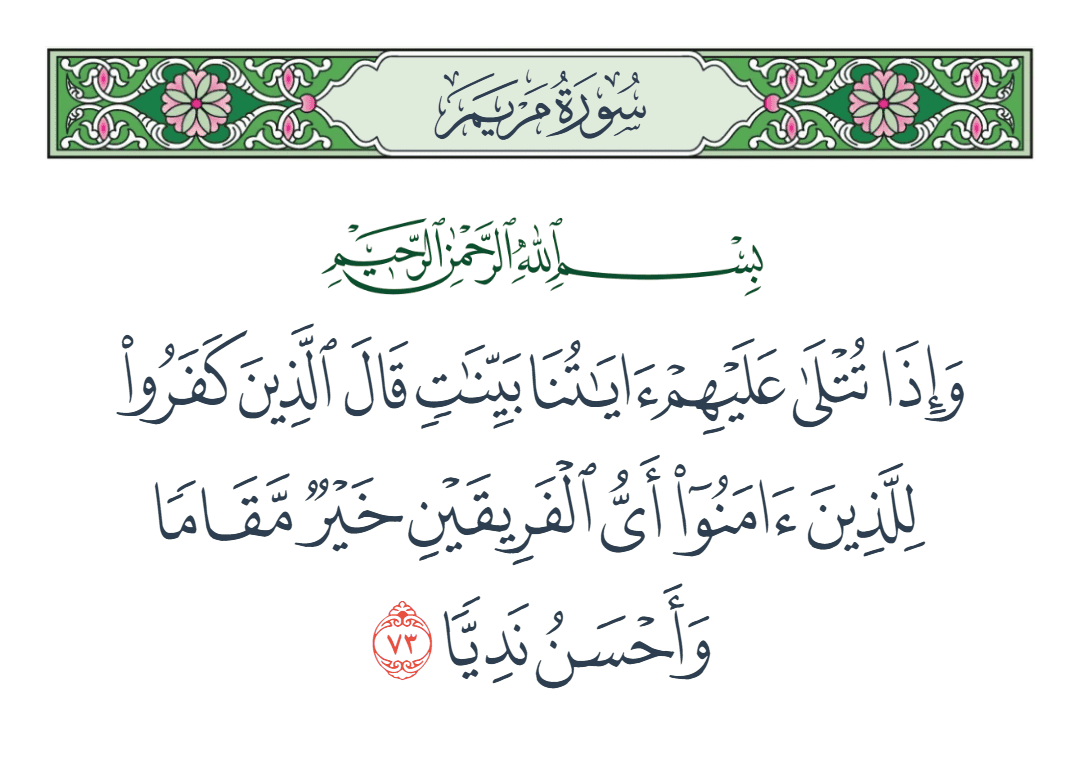 سُورَةُ مَرْيَمَ
بِسْمِ ٱللَّهِ ٱلرَّحْمَٰنِ ٱلرَّحِيمِ
وَإِذَا تُتْلَىٰ عَلَيْهِمْ ءَايَـٰتُنَا بَيِّنَـٰتٍ قَالَ ٱلَّذِينَ كَفَرُوا۟
لِلَّذِينَ ءَامَنُوٓا۟ أَىُّ ٱلْفَرِيقَيْنِ خَيْرٌ مَّقَامًا
وَأَحْسَنُ نَدِيًّا ٧٣